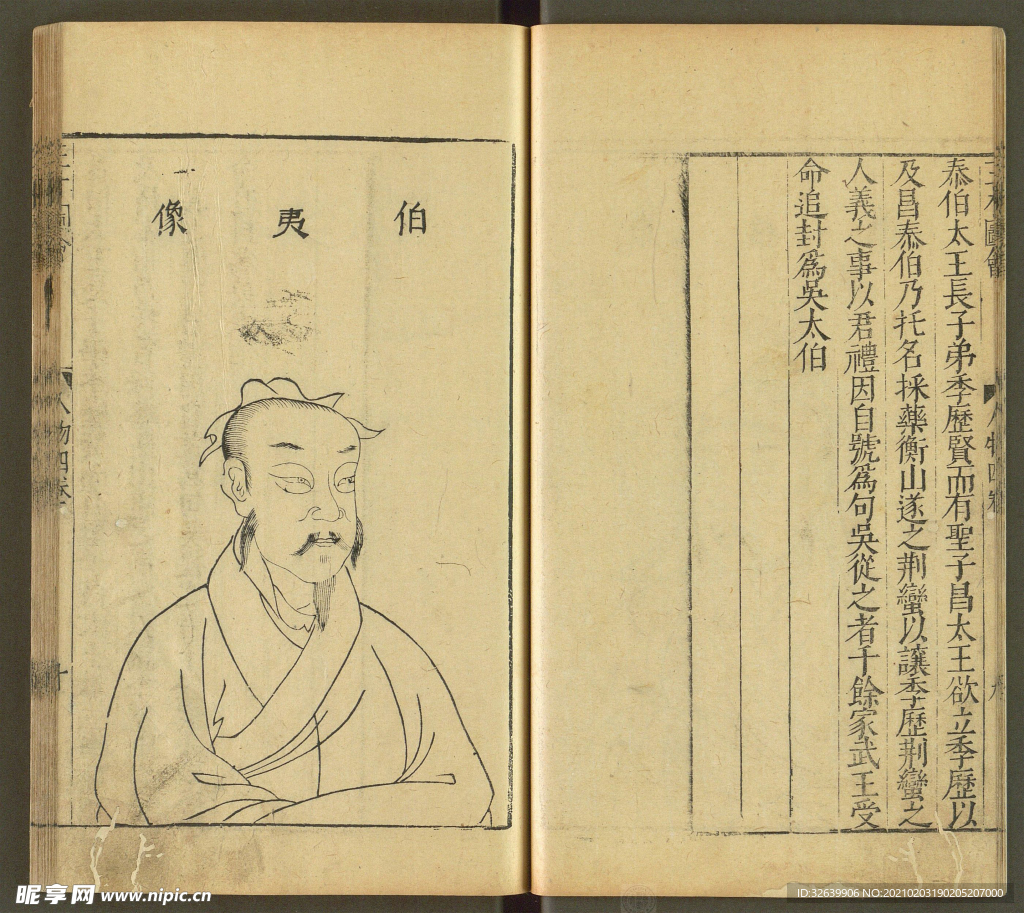 泰伯太王長子弟季歷賢而有聖子昌太王欲立季歷以
及昌泰伯乃托名採藥衡山遂之荆蠻以讓季歷荆蠻之
人義之事以君禮因自號爲句吳從之者千餘家武王受
命追封爲吳太伯
伯夷像
人物四卷
十
昵享网 www.nipic.cn
ID:32639906 NO:20210203190205207000